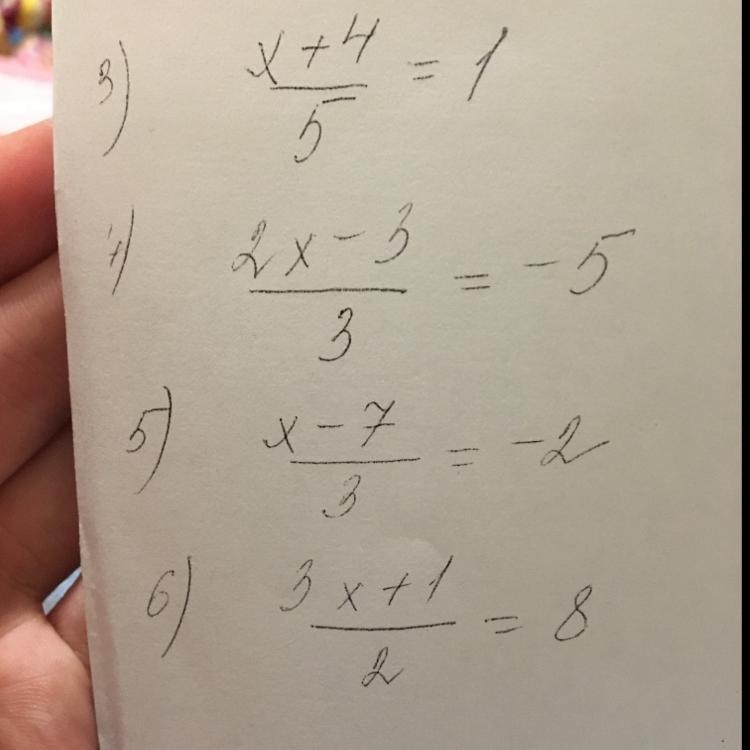 3) x+4/5 = 1
4) 2x-3/3 = -5
5) x-7/3 = -2
6) 3x+1/2 = 8